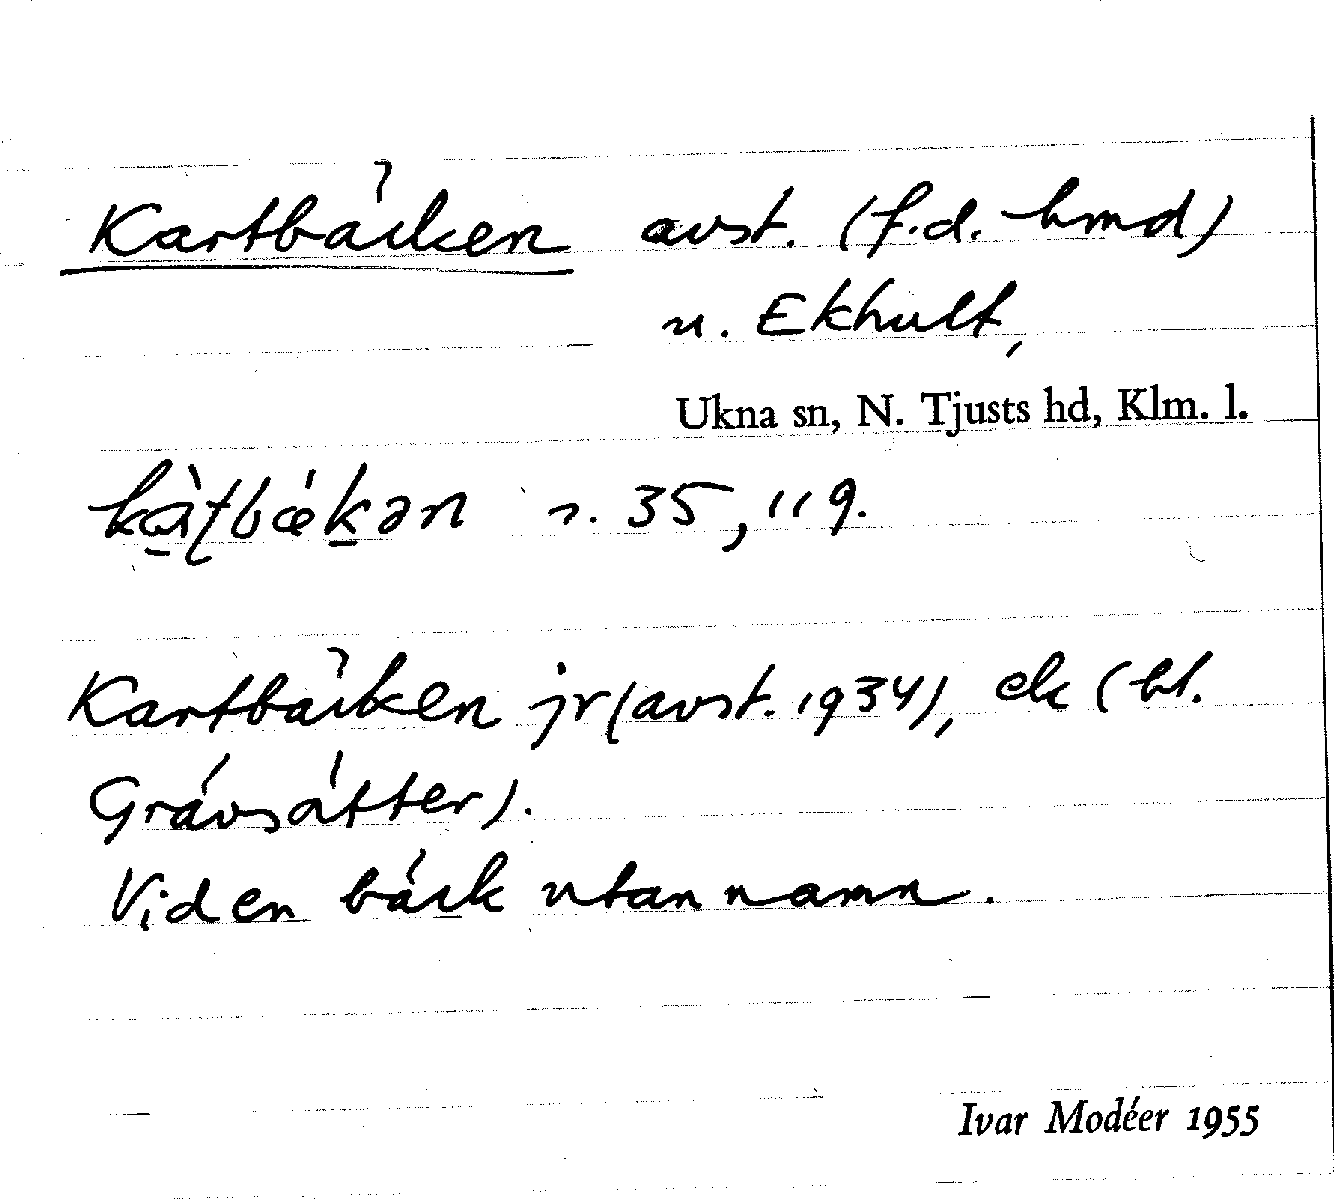 Kartbäcken avst. (f.d. hmd)
u. Ekhult,
Ukna sn, N. Tjusts hd, Klm. l.
35, 119.
Kartbäcken jr (avst. 1934), ek (bl.
Grävsätter).
Vid en bäck utan namn.
Ivar Modéer 1955